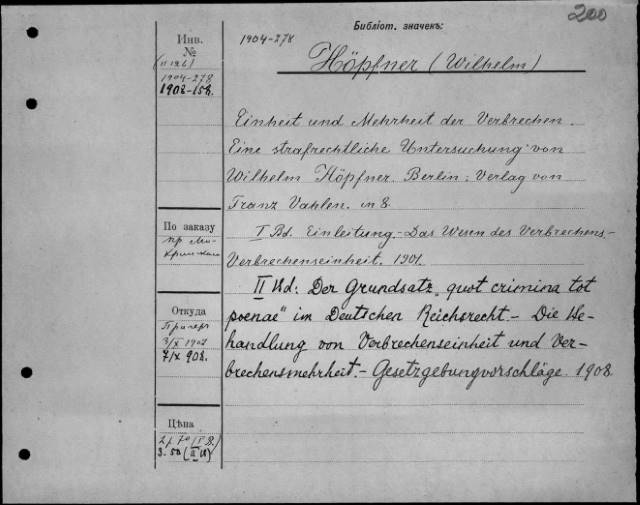 200
Библіот. значекъ:
Инв.
№
1904-278
Höpfner (Wilhelm)
1904-278
1908-158.
Einheit und Mehrheit der Verbrechen.
Eine strafrechtliche Untersuchung von
Wilhelm Höpfner. Berlin: Verlag von
Franz Vahlen. in 8.
По заказу
пр. Ми-
I Bd. Einleitung.- Das Wesen des Verbrechens.-
Verbrechenseinheit. 1901.
II Bd: Der Grundsatz „quot crimina tot
poenae" im Deutschen Reichsrecht.- Die Be-
handlung von Verbrechenseinheit und Ver-
brechensmehrheit.- Gesetzgebungvorschläge. 1908
Откуда
Прагеръ
3/IX 1904
7/IX 908.
Цѣна
2 р 70 (I B.)
3.50 (II B)